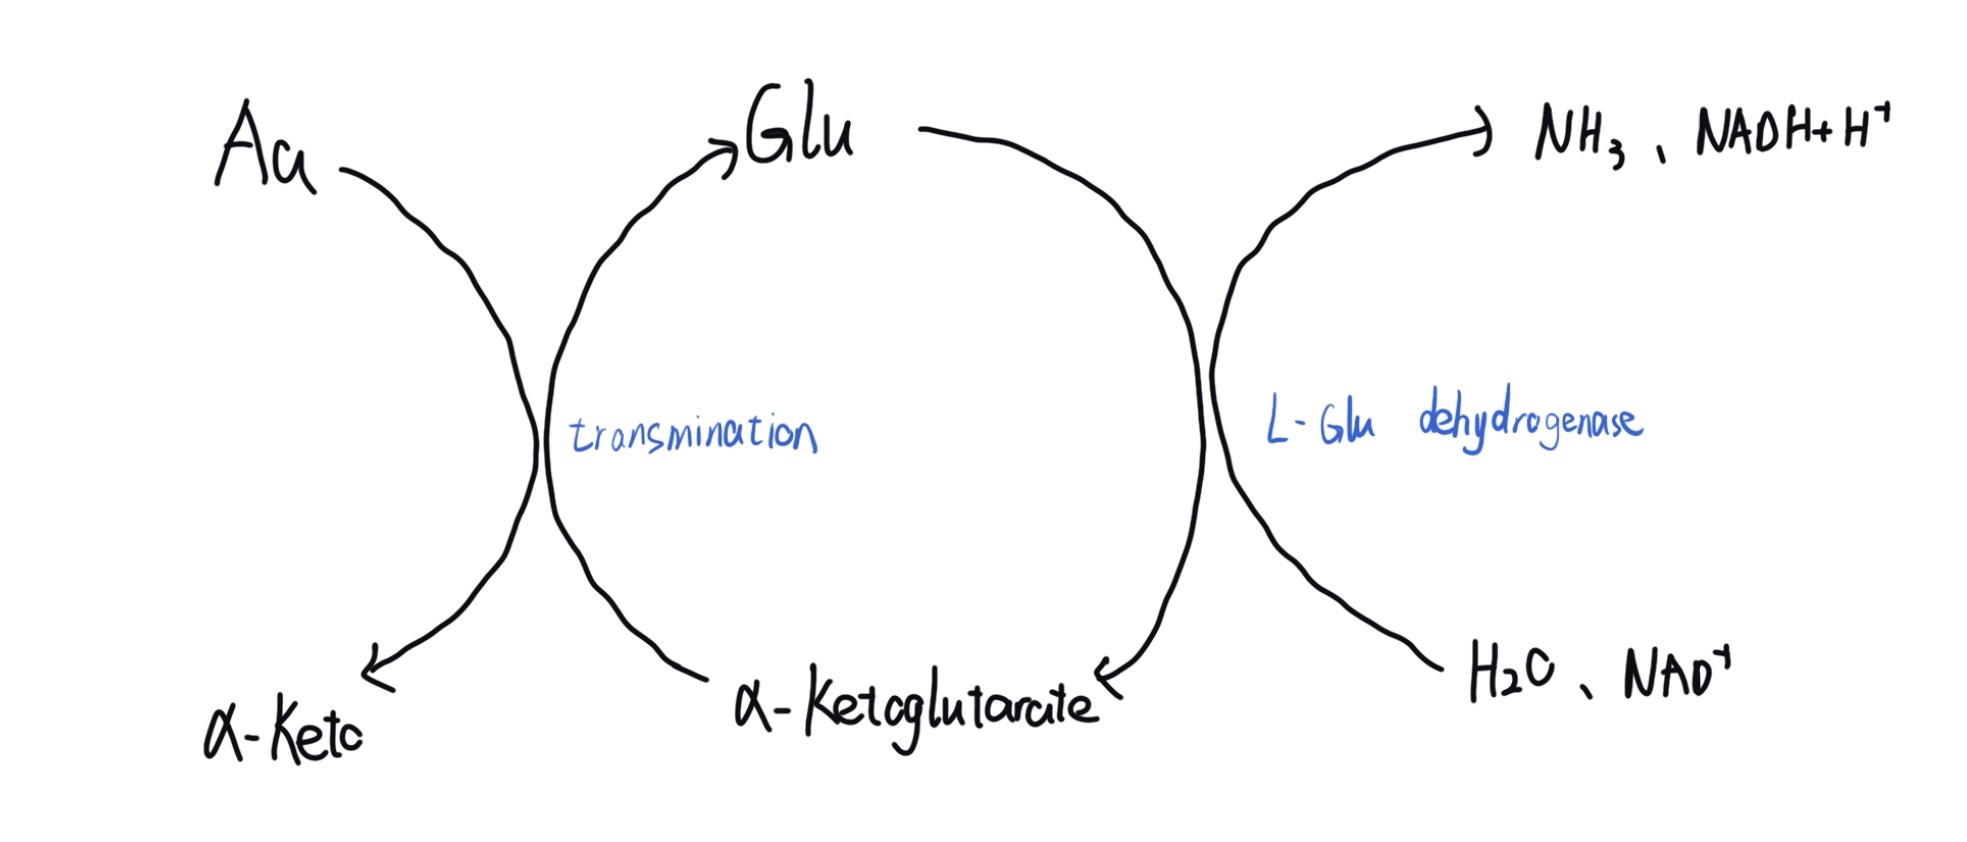 Aa
Glu
NH₃、NADH+H⁺
transmination
L-Glu dehydrogenase
α-Keto
α-Ketoglutarate
H₂O、NAD⁺